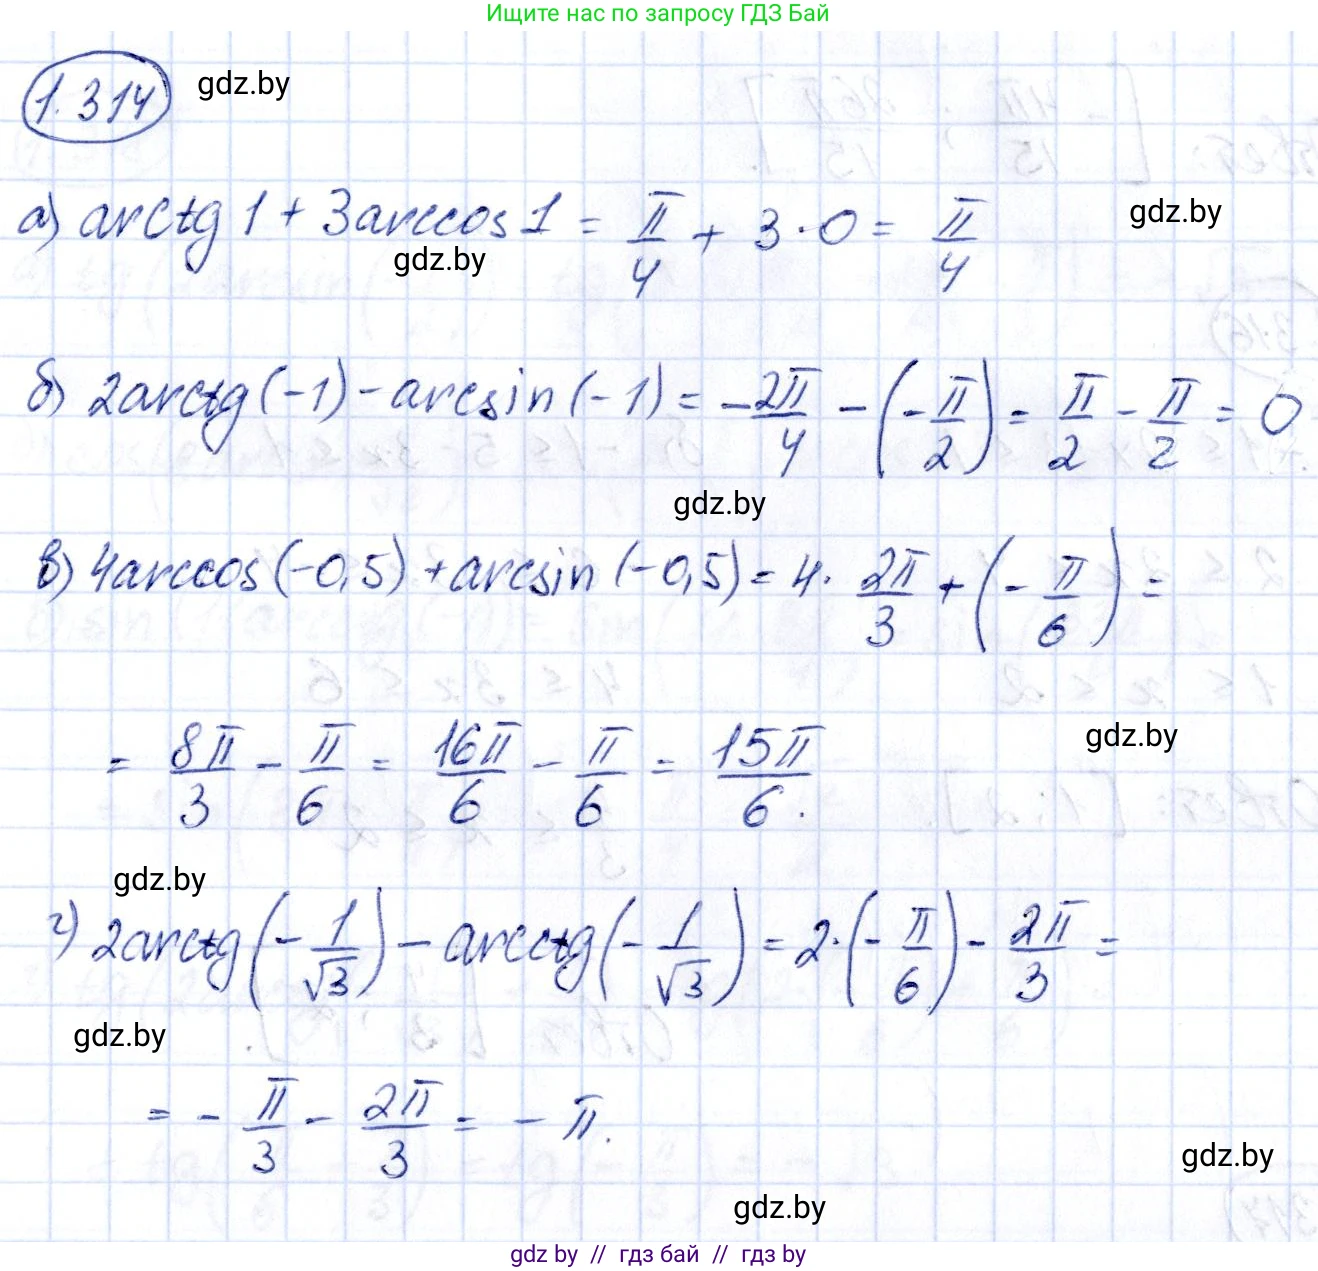 Ищите нас по запросу ГДЗ Бай
1.314 gdz.by
а) arctg 1 + 3arccos 1 = π/4 + 3·0 = π/4
gdz.by
gdz.by
б) 2arctg(-1) - arcsin(-1) = -2π/4 - (-π/2) = π/2 - π/2 = 0
gdz.by
в) 4arccos(-0,5) + arcsin(-0,5) = 4· 2π/3 + (-π/6) =
= 8π/3 - π/6 = 16π/6 - π/6 = 15π/6.
gdz.by
gdz.by
г) 2arctg(-1/√3) - arcctg(-1/√3) = 2·(-π/6) - 2π/3 =
gdz.by
= -π/3 - 2π/3 = -π.
gdz.by
gdz.by
gdz by // гдз бай // гдз by